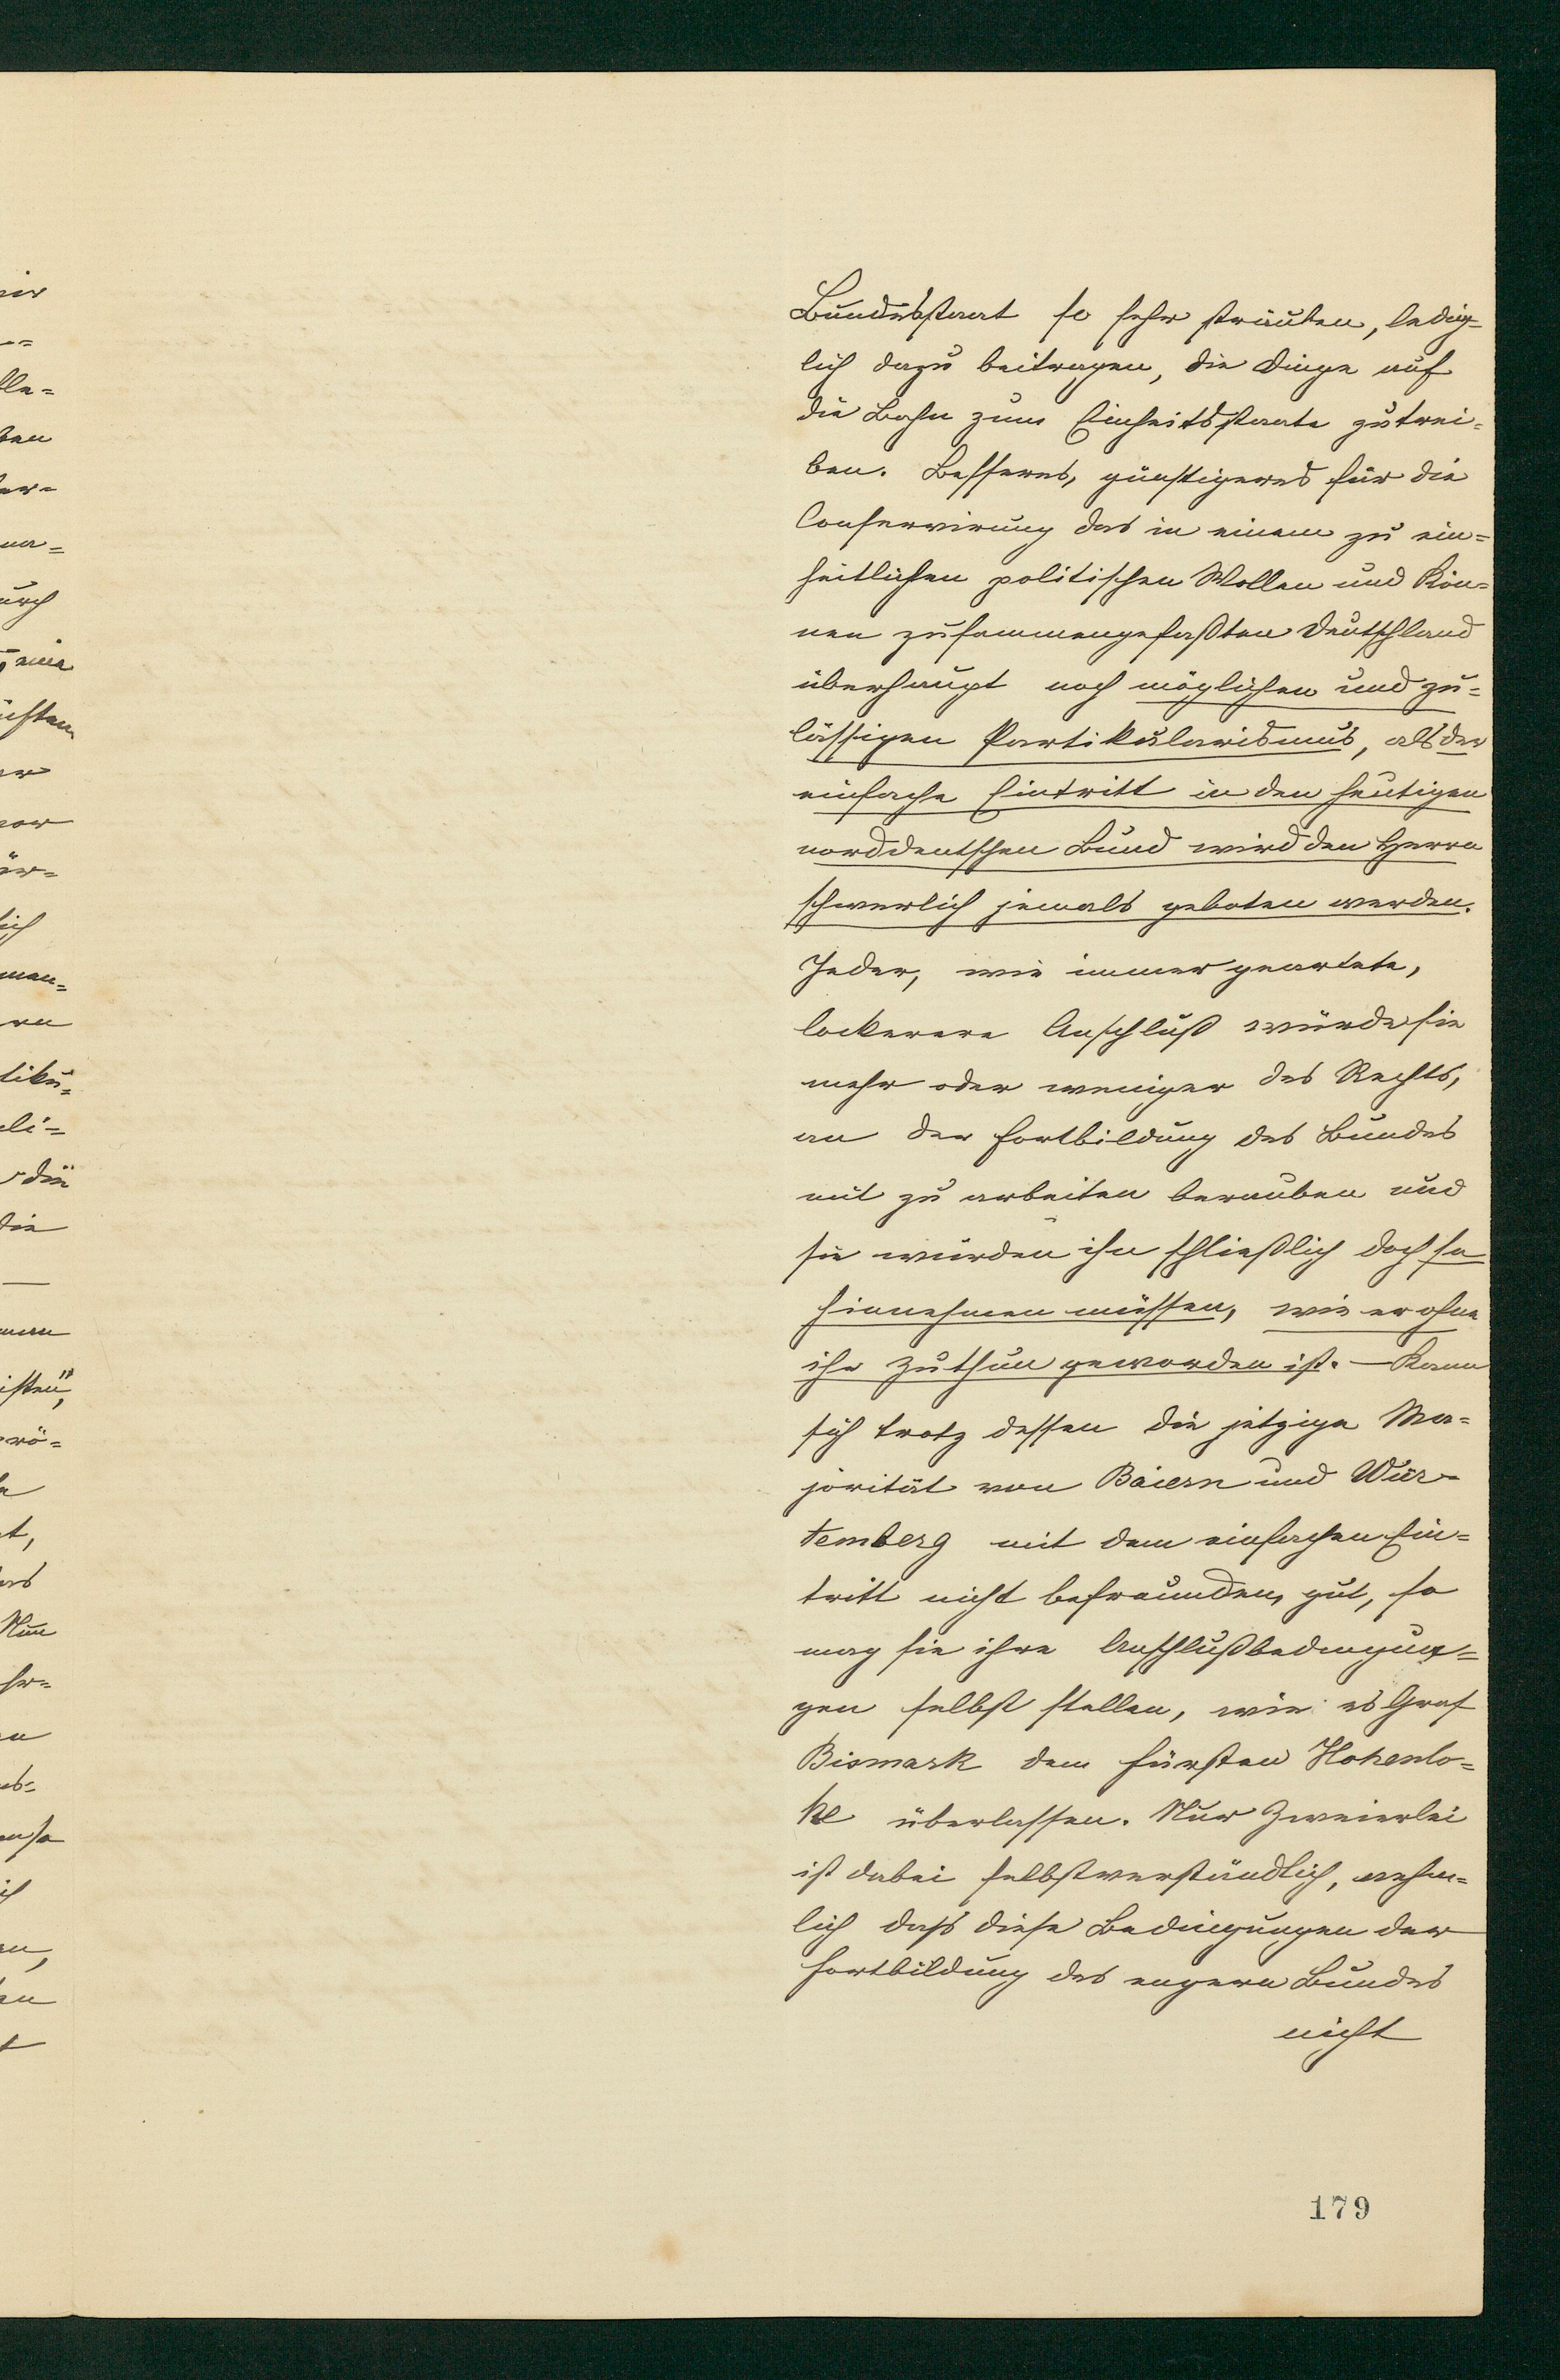 Bundesstaat so sehr sträuben, ledig=
lich dazu beitragen, die Dinge auf
die Bahn zum Einheitsstaate zutrei=
ben. Besseres, günstigeres für die
Conservirung des in einem zu ein=
heitlichen politischen Wollen und Kön=
nen zusammengefaßten Deutschland
überhaupt noch möglichen und zu=
lässigen Partikularismus, als der
einfache Eintritt in den heutigen
norddeutschen Bund wird den Herrn
schwerlich jemals geboten werden.
Jeder, wie immer geartete,
lockerere Anschluß würde sie
mehr oder weniger des Rechts,
an der Fortbildung des Bundes
mit zu arbeiten berauben und
sie würden ihn schließlich doch so
hinnehmen müssen, wie er ohne
ihr Zuthun geworden ist. — Kann
sich trotz dessen die jetzige Ma=
jorität von Baiern und Wür=
temberg mit dem einfachen Ein=
tritt nicht befreunden, gut, so
mag sie ihre Anschlußbedingun=
gen selbst stellen, wie es Graf
Bismark dem Fürsten Hohenlo=
he überlassen. Nur Zweierlei
ist dabei selbstverständlich, nehm=
lich daß diese Bedingungen der
Fortbildung des engern Bundes
nicht
179